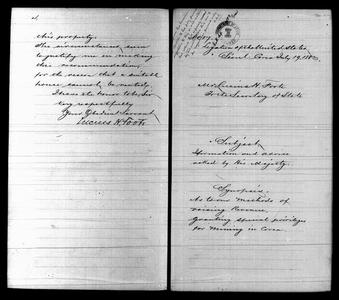 this property.
The circumstances seem
to justify me in making
this recommendation,
for the reason that a suitable
house cannot be rented.
I have the honor to be, Sir
Very respectfully
Your Obedient Servant
Lucius H. Foote
Legation of the United States,
Seoul, Corea July 19, 188
Mr Lucius H. Foote
To the Secretary of State
Subject
Information and advice
asked by His Majesty.
Synopsis.
As to our methods of
raising Revenue,
Granting special privileges
for Mining in Corea.